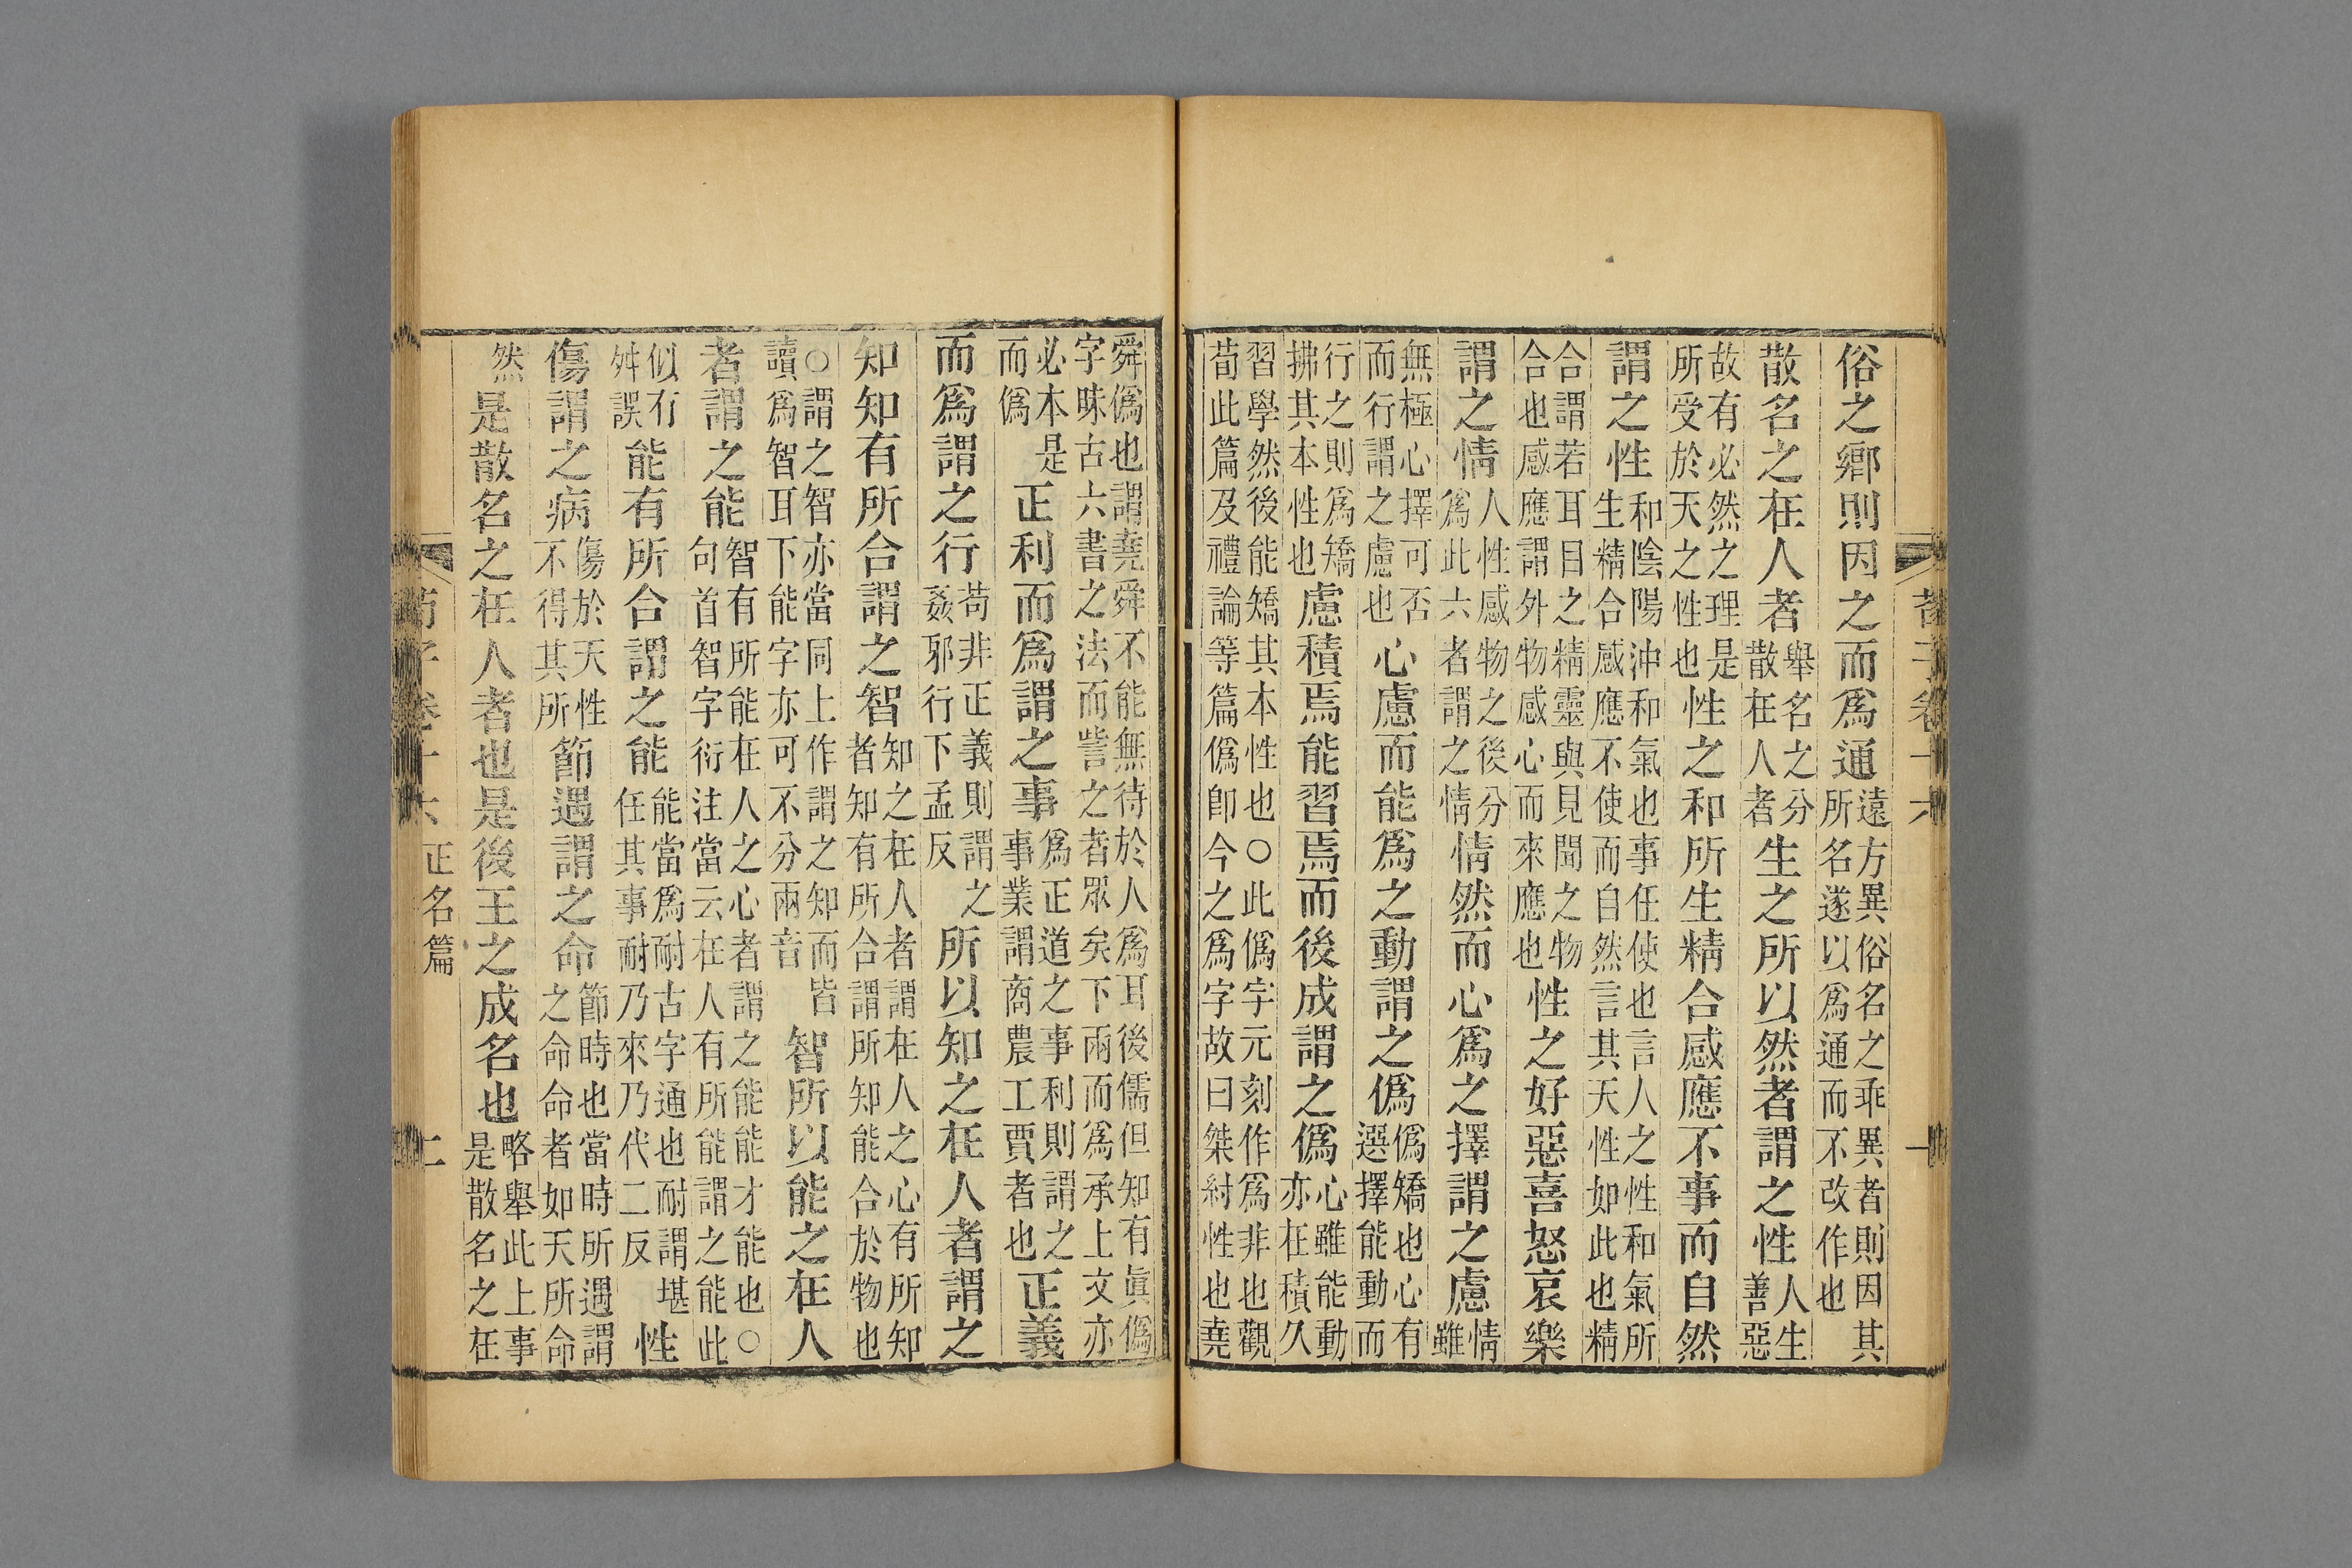 俗之鄉則因之而爲通遠方異俗名之乖異者則因其所名遂以爲通而不改作也
散名之在人者舉名之分散在人者生之所以然者謂之性人生善惡
故有必然之理是所受於天之性也性之和所生精合感應不事而自然
謂之性和陰陽沖和氣也事任使也言人之性和氣所生精合感應不使而自然言其天性如此也精
合謂若耳目之精靈與見聞之物合也感應謂外物感心而來應也性之好惡喜怒哀樂
謂之情人性感物之後分爲此六者謂之情情然而心爲之擇謂之慮情雖
無極心擇可否而行謂之慮也心慮而能爲之動謂之僞僞矯也心有選擇能動而
行之則爲矯拂其本性也慮積焉能習焉而後成謂之僞心雖能動亦在積久
習學然後能矯其本性也○此僞字元刻作爲非也觀荀此篇及禮論等篇僞卽今之爲字故曰桀紂性也堯
舜僞也謂堯舜不能無待於人爲耳後儒但知有眞僞字昧古六書之法而訾之者眾矣下兩而爲承上文亦
必本是而僞正利而爲謂之事爲正道之事利則謂之事業謂商農工賈者也正義
而爲謂之行苟非正義則謂之姦邪行下孟反所以知之在人者謂之
知知有所合謂之智知之在人者謂在人之心有所知者知有所合謂所知能合於物也
○謂之智亦當同上作謂之知而皆讀爲智耳下能字亦可不分兩音智所以能之在人
者謂之能智有所能在人之心者謂之能能才能也○句首智字衍注當云在人有所能謂之能此
似有舛誤能有所合謂之能能當爲耐古字通也耐謂堪任其事耐乃來乃代二反性
傷謂之病傷於天性不得其所節遇謂之命節時也當時所遇謂之命命者如天所命
然是散名之在人者也是後王之成名也略舉此上事是散名之在
荀子卷十六 正名篇 二